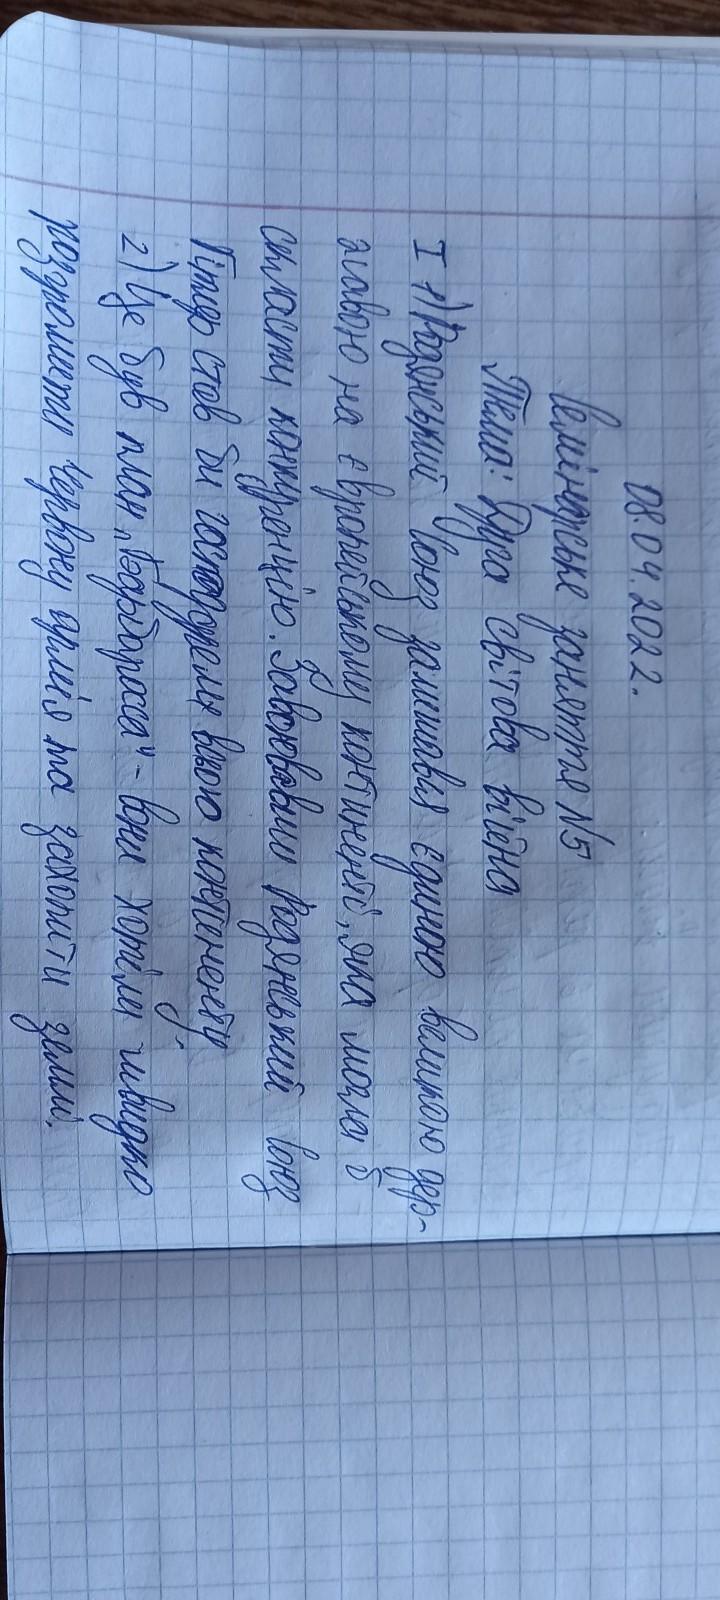 08.04.2022.
Семінарське заняття №5
Тема: Друга світова війна
I 1) Радянський Союз залишався єдиною великою дер-
жавою на європейському континенті, яка могла б
скласти конкуренцію. Завоювавши Радянський Союз
Гітлер став би господарем всього континенту
2) Це був план „Барбаросса" - вони хотіли швидко
розгромити Червону армія та захопити землі.